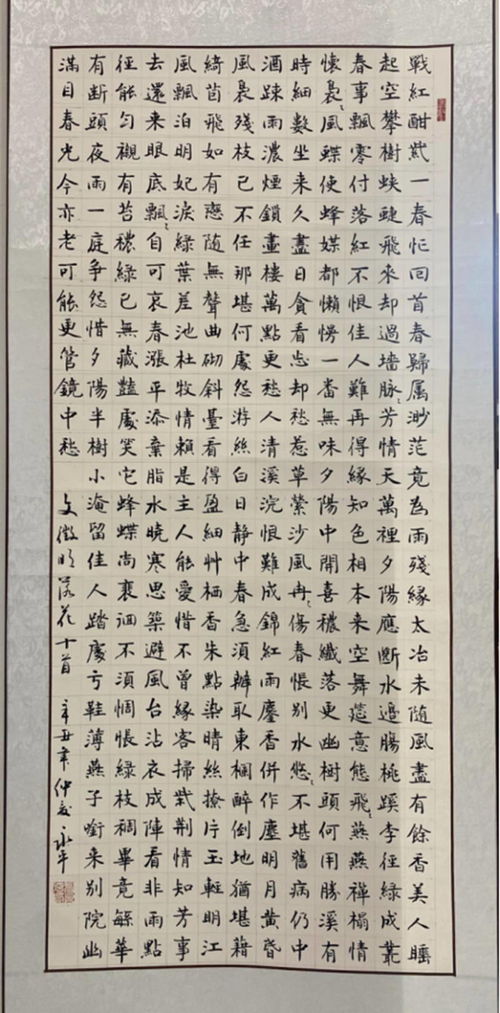 戰紅酣紫一春忙回首春歸属渺茫竟為雨殘緣太冶未随風盡有餘香美人睡
起空攀樹蛺蝶飛來却過墙脉々芳情天萬裡夕陽應断水邊腸桃蹊李徑綠成叢
春事飄零付落紅不恨佳人難再得緣知色相本來空舞筵意態飛々燕禪榻情
懷裊々風蝶使蜂媒都懶愣一番無味夕陽中開喜穠纖落更幽樹頭何用勝溪有
時細數坐来久盡日貪看忘却愁惹草縈沙風冉々傷春悵別水悠々不堪舊病仍中
酒踈雨濃煙鎖畫樓萬點更愁人清溪浣恨難成錦紅雨塵香併作塵明月黄昏
風裊殘枝已不任那堪何處怨游絲白日静中春急須辦取東欄醉倒地猶堪藉
綺茵飛如有戀随無聲曲砌斜臺看得盈細艸栖香朱點染晴絲撩片玉輕明江
風飄泊明妃淚綠葉差池杜牧情賴是主人能愛惜不曾緣客掃紫荆情知芳事
去還来眼底飄々自可哀春漲平添棄脂水曉寒思築避風台沾衣成陣看非雨點
徑能勻襯有苔穠綠已無藏豔處笑它蜂蝶尚裵徊不須惆悵綠枝稠畢竟緐華
有断頭夜雨一庭争怨惜夕陽半樹小淹留佳人踏處弓鞋薄燕子銜来別院幽
滿目春光今亦老可能更管鏡中愁 文徵明落花十首 辛丑年仲夏永平